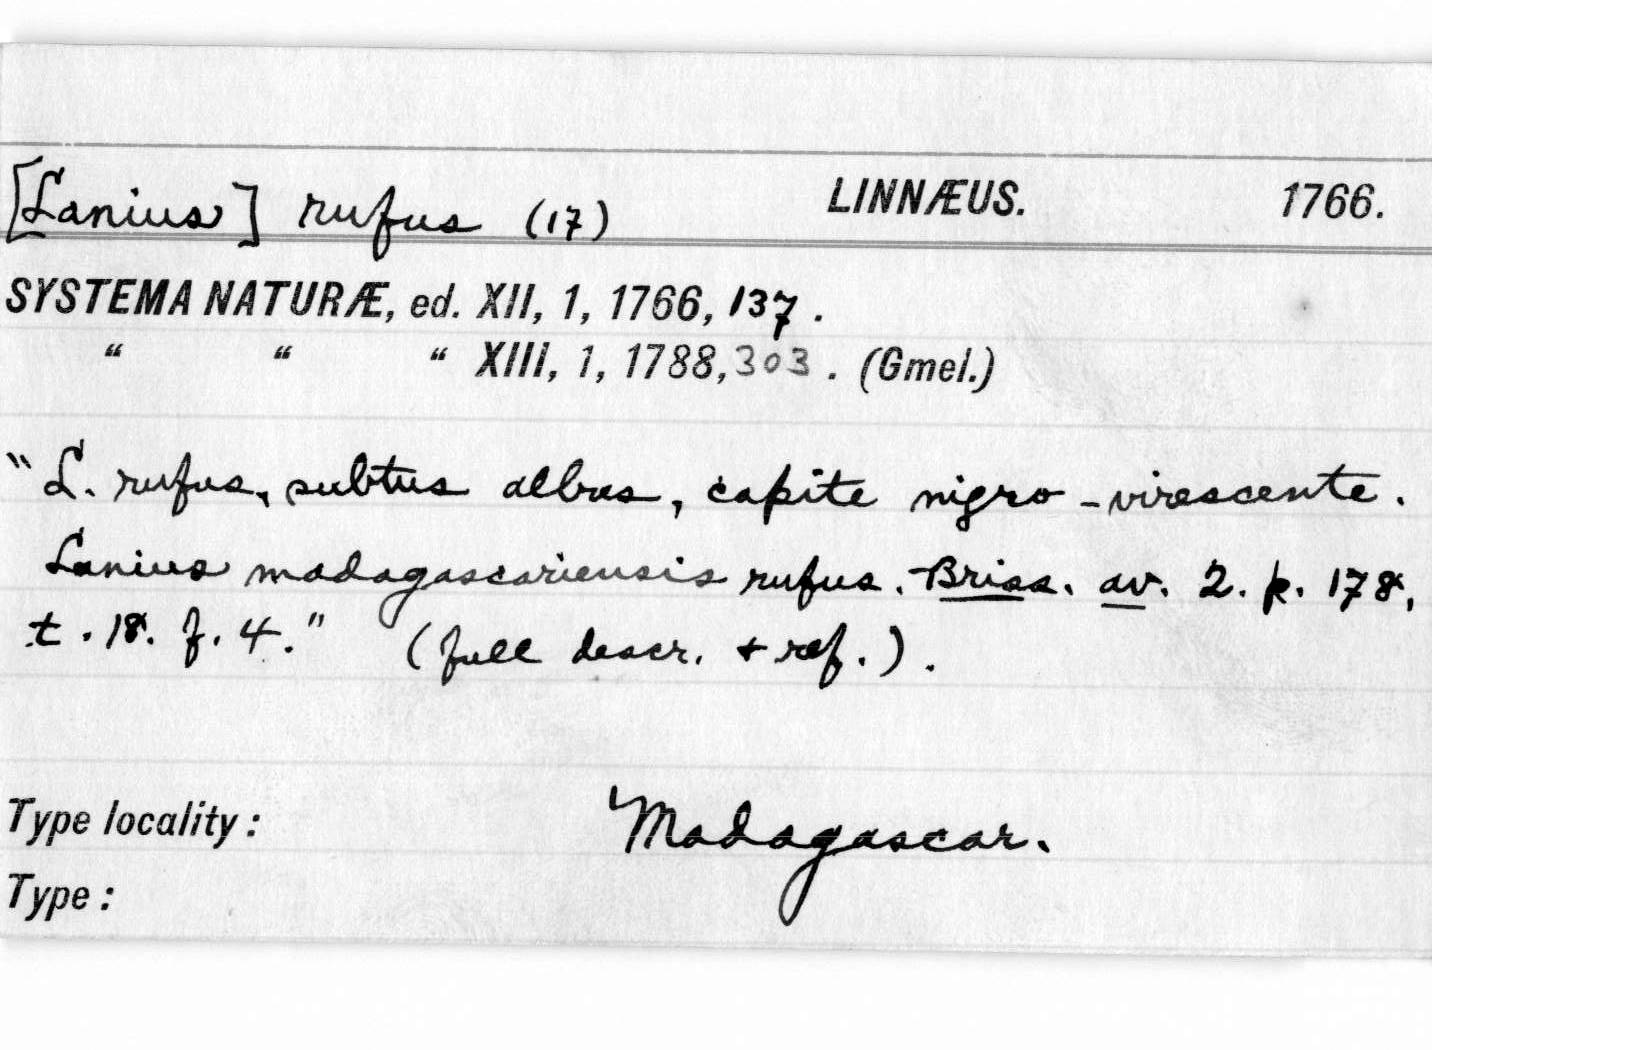 [Lanius] rufus (17) LINNÆUS. 1766.
SYSTEMA NATURÆ, ed. XII, 1, 1766, 137.
“ “ “ XIII, 1, 1788, 303. (Gmel.)
"L. rufus, subtus albus, capite nigro-virescente.
Lanius madagascariensis rufus. Briss. av. 2. p. 178,
t. 18. f. 4." (full descr. + ref.).
Type locality: Madagascar.
Type: